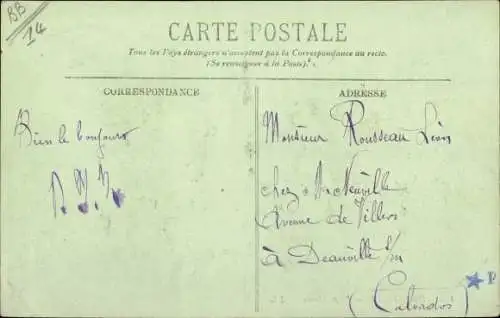 BB
14
CARTE POSTALE
Tous les Pays étrangers n'acceptent pas la Correspondance au recto.
(Se renseigner à la Poste).
CORRESPONDANCE
ADRESSE
Bien le bonjour
Monsieur Rousseau Léon
chez Mr Neuville
Avenue de Villers
à Deauville s/m
(Calvados)